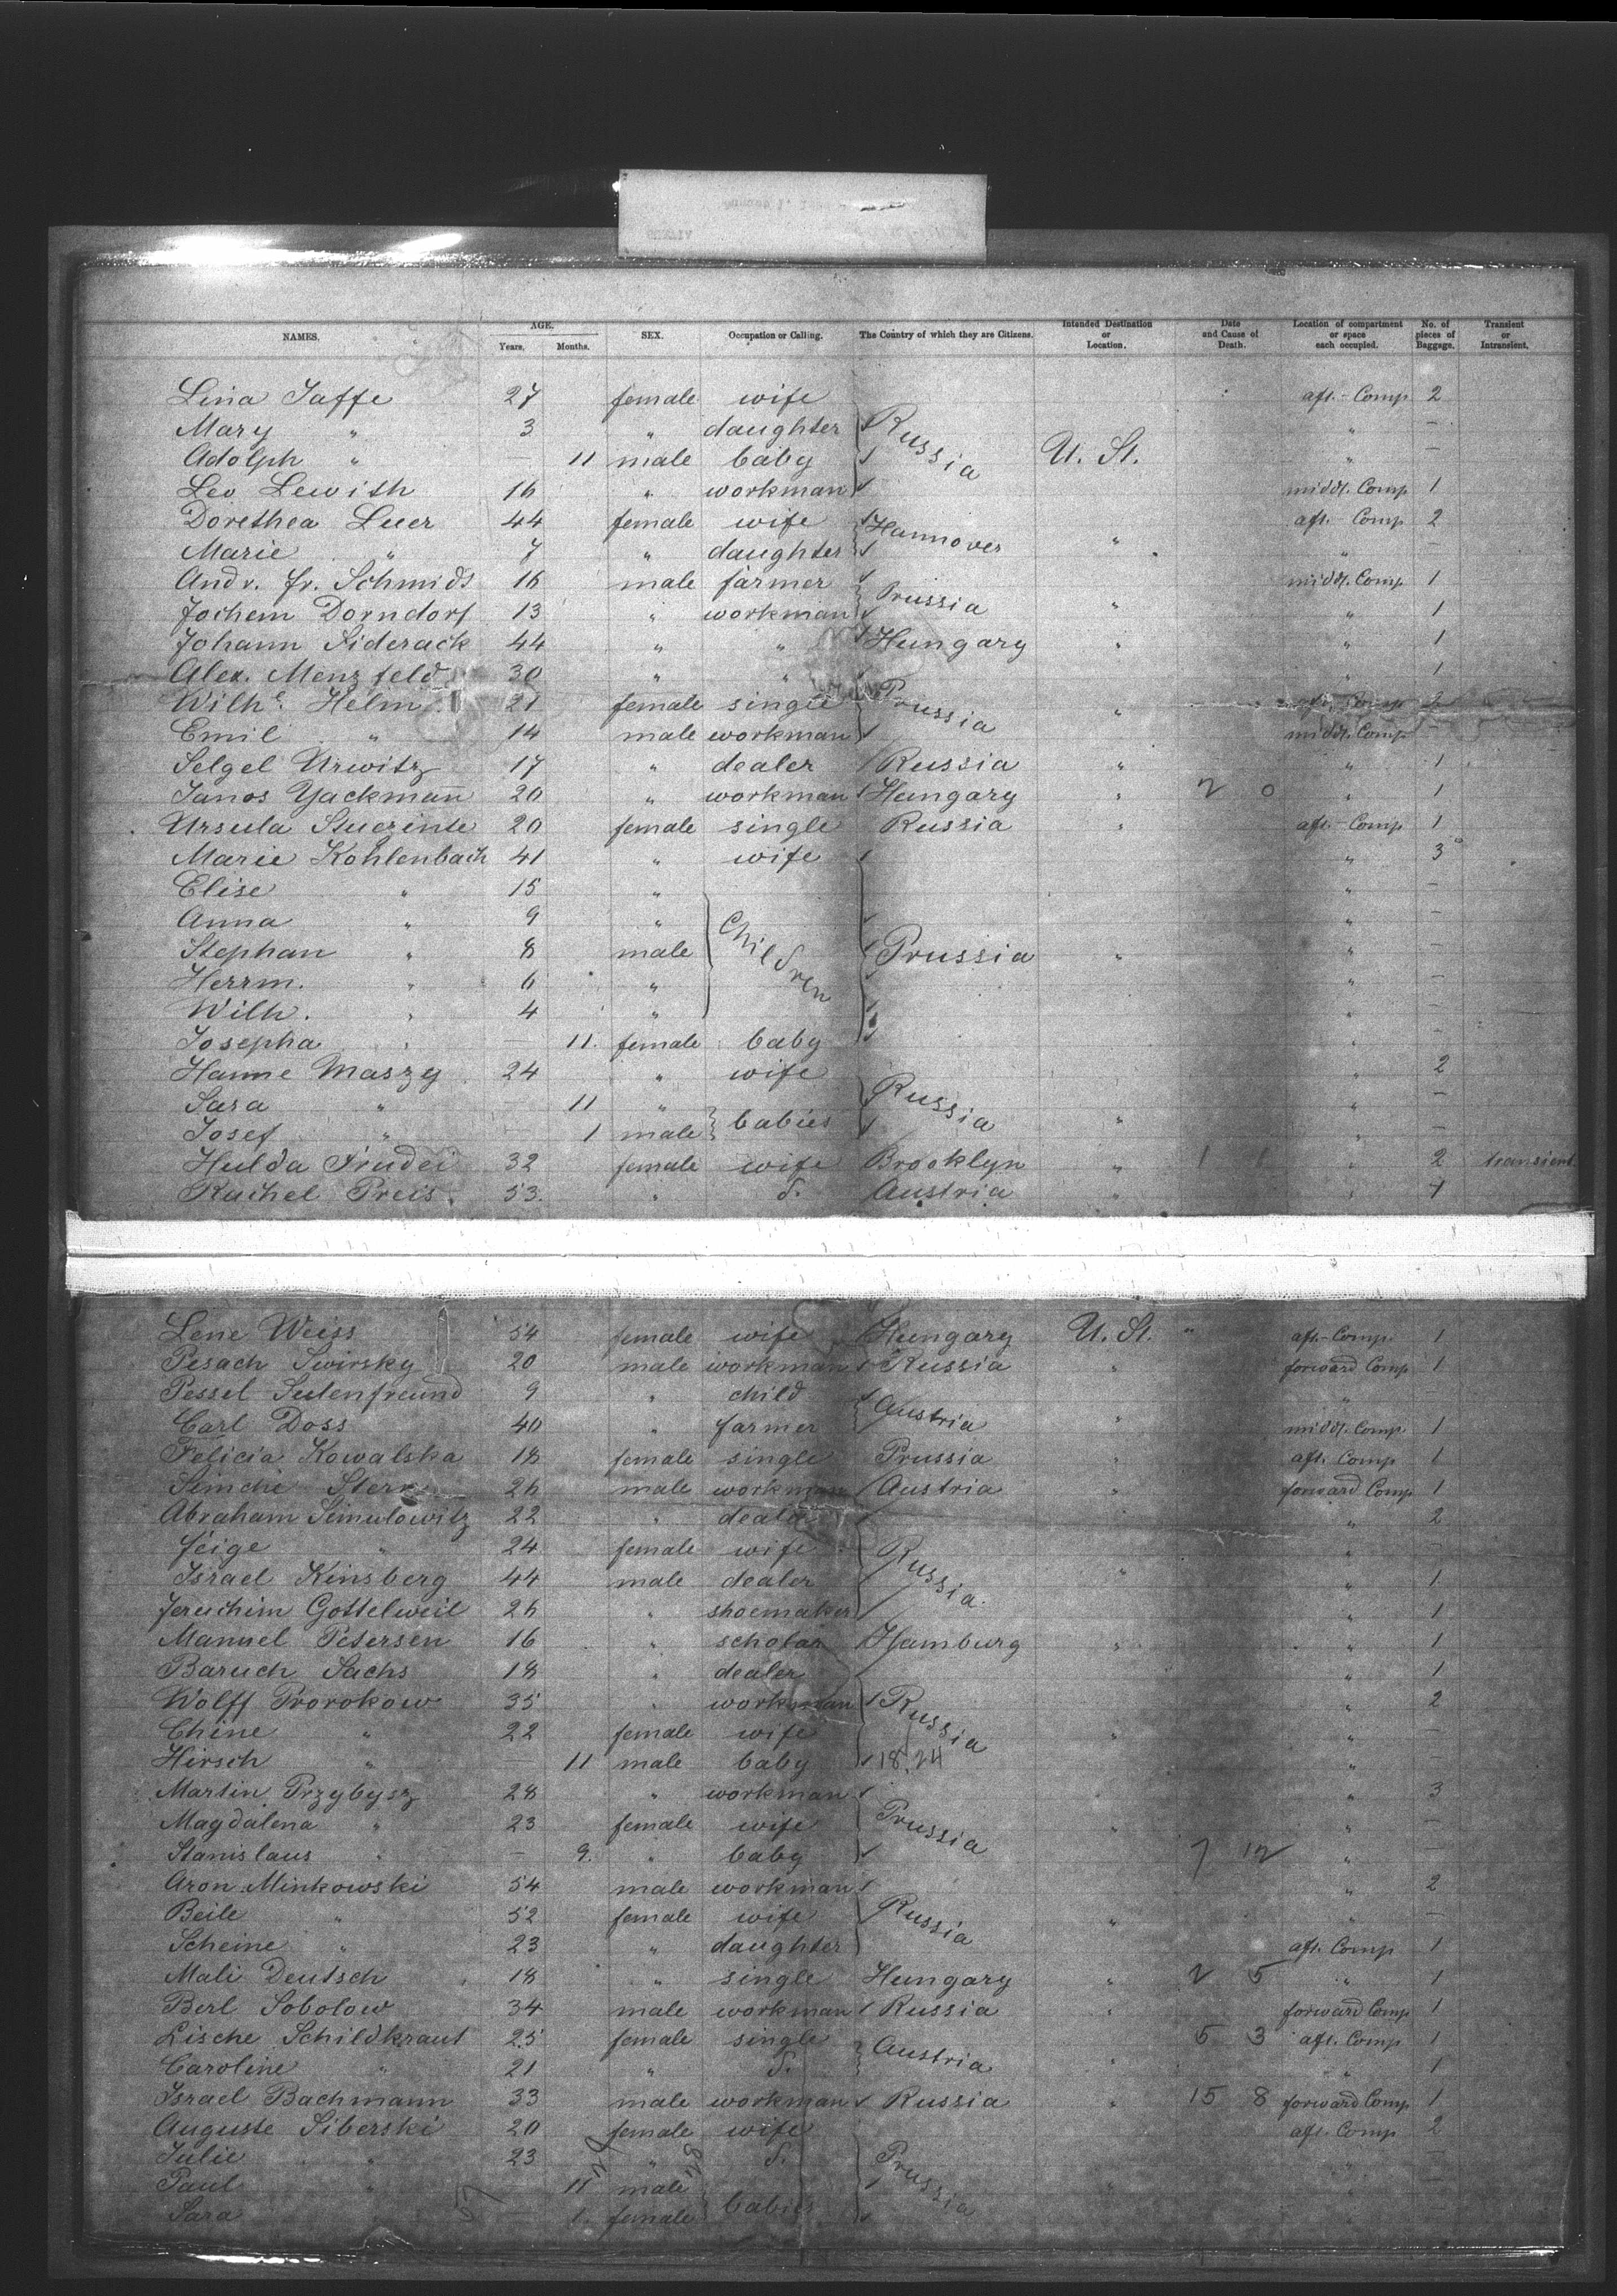 NAMES. AGE. Years. Months. SEX. Occupation or Calling. The Country of which they are Citizens. Intended Destination or Location. Date and Cause of Death. Location of compartment or space each occupied. No. of pieces of Baggage. Transient or Intransient.
Lina Jaffe 27 female wife aft.-Comp 2
Mary " 3 " daughter Russia " –
Adolph " – 11 male baby U. St. " –
Leo Lewith 16 " workman middl. Comp 1
Dorethea Luer 44 female wife Hannover aft.-Comp 2
Marie " 7 " daughter " " –
Andr. Fr. Schmidt 16 male farmer Prussia middl. Comp 1
Jochem Dorndorf 13 " workman " " 1
Johann Siderack 44 " " Hungary " " 1
Alex. Menzfeld 30 " " Prussia " 1
Wilhe. Helm 21 female single " aft. Comp 2
Emil " 14 male workman middl. Comp –
Selgel Urwitz 17 " dealer Russia " " 1
Janos Yackmann 20 " workman Hungary " 2 0 " 1
Ursula 20 female single Russia " aft.-Comp 1
Marie Kohlenbach 41 " wife " 3
Elise " 15 " " –
Anna " 9 " Children " –
Stephan " 8 male Prussia " " –
Herrm. " 6 " " –
Wilh. " 4 " " –
Josepha " – 11. female baby " –
Hanne Maszy 24 " wife " 2
Sara " – 11 " babies Russia " –
Josef " – 1 male " " –
Hulda 32 female wife Brooklyn " 1 1 " 2 transient
Rachel Preis. 53. " d. Austria " " 1
Lene Weiss 54 female wife Hungary U. St. " aft.-Comp. 1
Pesach Swirsky 20 male workman Russia " forward Comp 1
Pessel Seelenfreund 9 " child Austria "
Carl Doss 40 " farmer " middl. Comp 1
Felicia Kowalska 18 female single Prussia " aft. Comp 1
Simche Stern 26 male workman Austria " forward Comp 1
Abraham Simulowitz 22 " dealer " 2
Feige " 24 female wife Russia " –
Israel Kinsberg 44 male dealer " " 1
Jeruchim Gottelweil 26 " shoemaker " 1
Manuel Petersen 16 " scholar Hamburg " " 1
Baruch Sachs 18 " dealer " 1
Wolff Prorokow 35 " workman Russia " 2
Chine " 22 female wife " " –
Hirsch " – 11 male baby 18.24 " –
Martin Przybysz 28 " workman " 3
Magdalena " 23 female wife Prussia " " –
Stanislaus " – 9. " baby 7 12 " –
Aron Minkowski 54 male workman " 2
Beile " 52 female wife Russia " " –
Scheine " 23 " daughter aft. Comp 1
Mali Deutsch 18 " single Hungary " 2 5 " 1
Berl Sobolow 34 male workman Russia " forward Comp 1
Lische Schildkraut 25 female single Austria 5 3 aft. Comp 1
Caroline " 21 " d. " " 1
Israel Bachmann 33 male workman Russia " 15 8 forward Comp 1
Auguste Siberski 20 female wife aft. Comp 2
Julie " 23 " d. Prussia " –
Paul " – 11 male babies " " –
Sara " – 1. female "